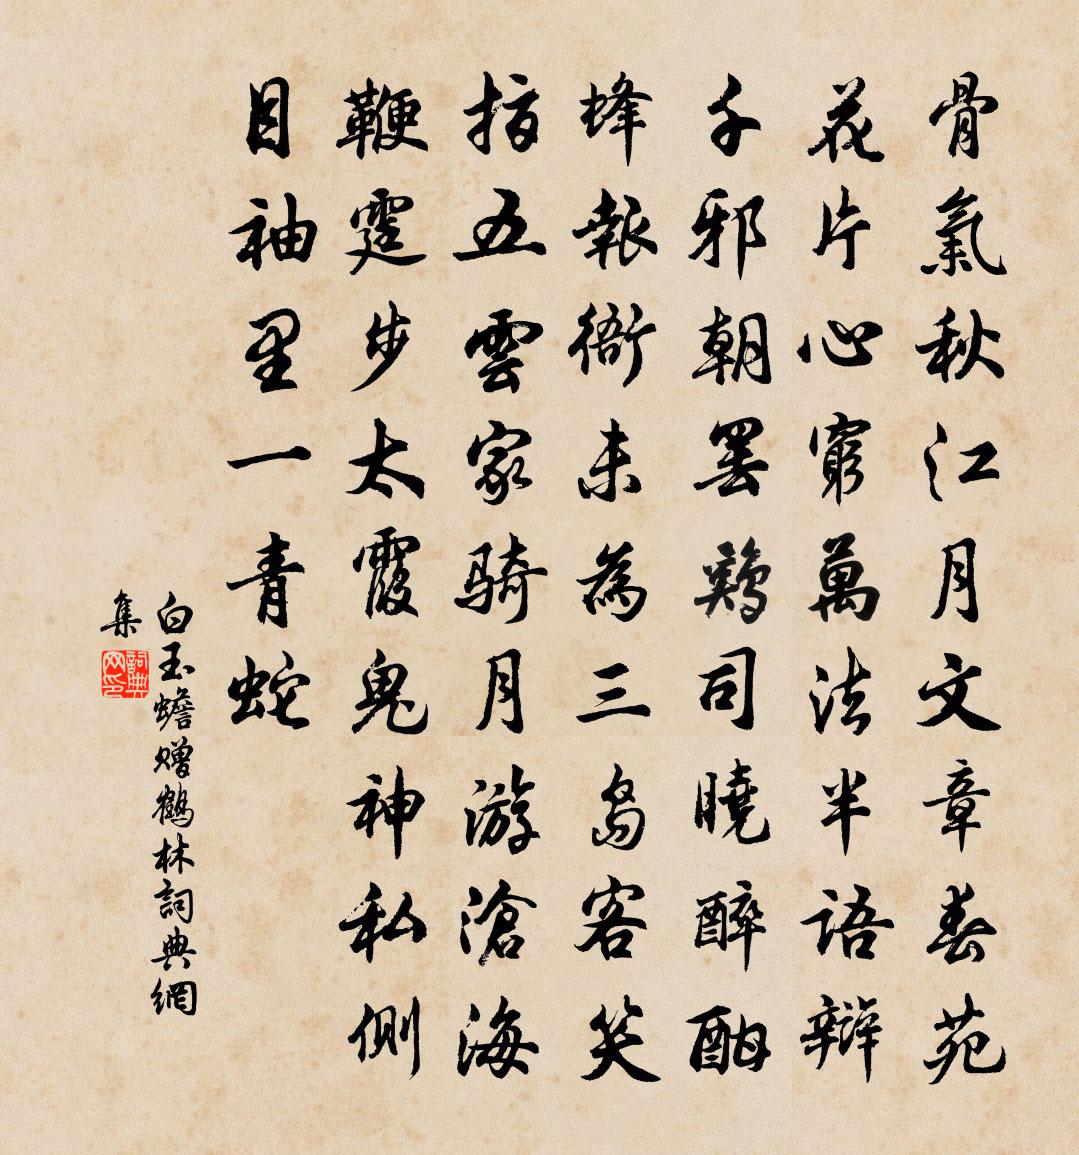 骨氣秋江月文章春苑
花片心窮萬法半語辯
千邪朝罷鷄司曉醉酣
蜂報衙未為三島客笑
指五雲家騎月游滄海
鞭霆步太霞鬼神私側
目袖里一青蛇
白玉蟾贈鶴林詞典網
集
詞典
网印